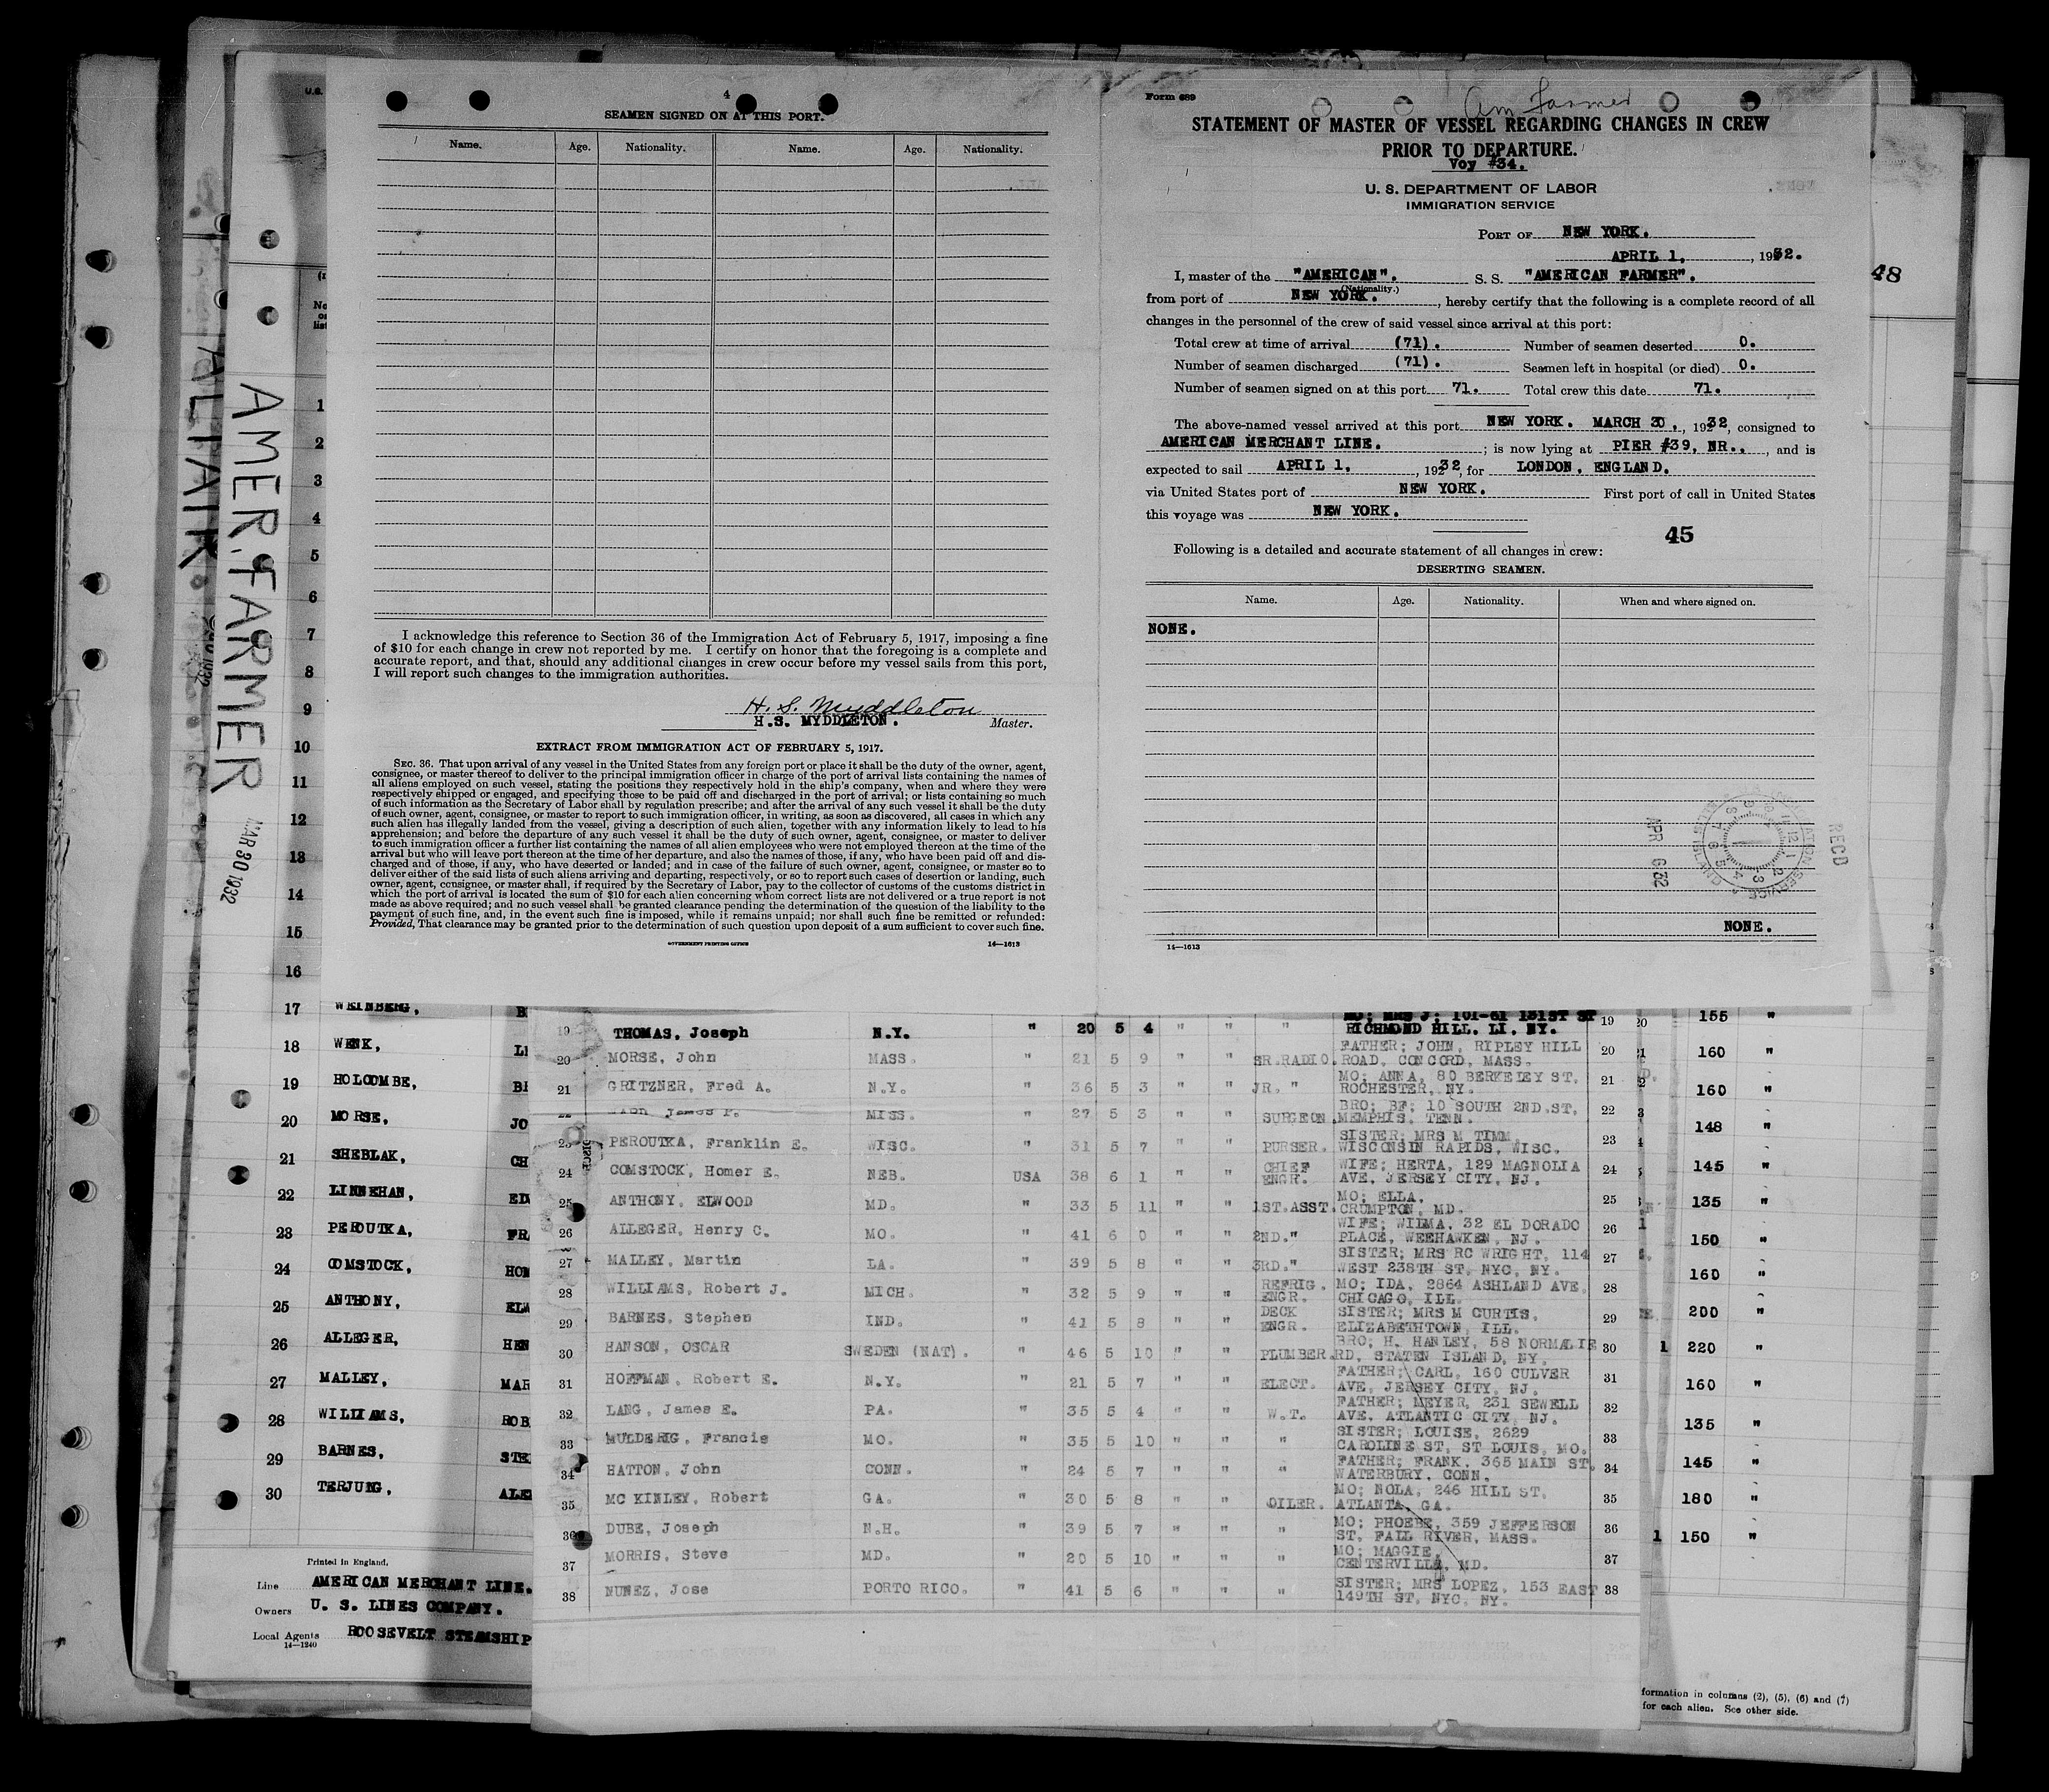 4
SEAMEN SIGNED ON AT THIS PORT.
Name. Age. Nationality. Name. Age. Nationality.
I acknowledge this reference to Section 36 of the Immigration Act of February 5, 1917, imposing a fine
of $10 for each change in crew not reported by me. I certify on honor that the foregoing is a complete and
accurate report, and that, should any additional changes in crew occur before my vessel sails from this port,
I will report such changes to the immigration authorities.
H. S. Myddleton
H.S. MYDDLETON. Master.
EXTRACT FROM IMMIGRATION ACT OF FEBRUARY 5, 1917.
SEC. 36. That upon arrival of any vessel in the United States from any foreign port or place it shall be the duty of the owner, agent,
consignee, or master thereof to deliver to the principal immigration officer in charge of the port of arrival lists containing the names of
all aliens employed on such vessel, stating the positions they respectively hold in the ship's company, when and where they were
respectively shipped or engaged, and specifying those to be paid off and discharged in the port of arrival; or lists containing so much
of such information as the Secretary of Labor shall by regulation prescribe; and after the arrival of any such vessel it shall be the duty
of such owner, agent, consignee, or master to report to such immigration officer, in writing, as soon as discovered, all cases in which any
such alien has illegally landed from the vessel, giving a description of such alien, together with any information likely to lead to his
apprehension; and before the departure of any such vessel it shall be the duty of such owner, agent, consignee, or master to deliver
to such immigration officer a further list containing the names of all alien employees who were not employed thereon at the time of the
arrival but who will leave port thereon at the time of her departure, and also the names of those, if any, who have been paid off and dis-
charged and of those, if any, who have deserted or landed; and in case of the failure of such owner, agent, consignee, or master so to
deliver either of the said lists of such aliens arriving and departing, respectively, or so to report such cases of desertion or landing, such
owner, agent, consignee, or master shall, if required by the Secretary of Labor, pay to the collector of customs of the customs district in
which the port of arrival is located the sum of $10 for each alien concerning whom correct lists are not delivered or a true report is not
made as above required; and no such vessel shall be granted clearance pending the determination of the question of the liability to the
payment of such fine, and, in the event such fine is imposed, while it remains unpaid; nor shall such fine be remitted or refunded:
Provided, That clearance may be granted prior to the determination of such question upon deposit of a sum sufficient to cover such fine.
GOVERNMENT PRINTING OFFICE 14—1613
Form 689
Am Farmer
STATEMENT OF MASTER OF VESSEL REGARDING CHANGES IN CREW
PRIOR TO DEPARTURE.
Voy #34.
U. S. DEPARTMENT OF LABOR
IMMIGRATION SERVICE
PORT OF NEW YORK.
APRIL 1, , 1932.
I, master of the "AMERICAN". S. S. "AMERICAN FARMER".
(Nationality.)
from port of NEW YORK. , hereby certify that the following is a complete record of all
changes in the personnel of the crew of said vessel since arrival at this port:
Total crew at time of arrival (71). Number of seamen deserted 0.
Number of seamen discharged (71). Seamen left in hospital (or died) 0.
Number of seamen signed on at this port 71. Total crew this date 71.
The above-named vessel arrived at this port NEW YORK. MARCH 30, , 1932, consigned to
AMERICAN MERCHANT LINE. ; is now lying at PIER #39, NR., , and is
expected to sail APRIL 1, , 1932, for LONDON, ENGLAND.
via United States port of NEW YORK. First port of call in United States
this voyage was NEW YORK.
45
Following is a detailed and accurate statement of all changes in crew:
DESERTING SEAMEN.
Name. Age. Nationality. When and where signed on.
NONE.
RECD
APR 6 32
NONE.
14—1613
48
U.S.
ALTAIR
AMER. FARMER
MAR 30 1932
1
2
3
4
5
6
7
8
9
10
11
12
13
14
15
16
17 WEINBERG,
18 WENK, LI
19 HOLCOMBE,
20 MORSE, JO
21 SHEBLAK, CH
22 LINNEHAN, ED
23 PEROUTKA, FRA
24 COMSTOCK, HOM
25 ANTHONY, ELW
26 ALLEGER, HEN
27 MALLEY, MAR
28 WILLIAMS, ROB
29 BARNES, STE
30 TERJUNG, ALE
Printed in England.
Line AMERICAN MERCHANT LINE.
Owners U. S. LINES COMPANY.
Local Agents ROOSEVELT STEAMSHIP
14—1240
MO; MRS J; 101-61 131ST ST
19 THOMAS, Joseph N.Y. " 20 5 4 " " " RICHMOND HILL. LI. NY. 19
FATHER; JOHN, RIPLEY HILL
20 MORSE, John MASS. " 21 5 9 " " SR.RADIO. ROAD, CONCORD, MASS. 20
MO; ANNA, 80 BERKELEY ST.
21 GRITZNER, Fred A. N.Y. " 36 5 3 " " JR. " ROCHESTER, NY. 21
BRO; BF; 10 SOUTH 2ND.ST.
22 James P. MISS. " 27 5 3 " " SURGEON. MEMPHIS, TENN. 22
SISTER; MRS M TIMM
23 PEROUTKA, Franklin E. WISC. " 31 5 7 " " PURSER. WISCONSIN RAPIDS, WISC. 23
CHIEF WIFE; HERTA, 129 MAGNOLIA
24 COMSTOCK, Homer E. NEB. USA 38 6 1 " " ENGR. AVE, JERSEY CITY, NJ. 24
MO; ELLA,
25 ANTHONY, ELWOOD MD. " 33 5 11 " " 1ST.ASST. CRUMPTON, MD. 25
WIFE; WILMA, 32 EL DORADO
26 ALLEGER, Henry C. MO. " 41 6 0 " " 2ND." PLACE, WEEHAWKEN, NJ. 26
SISTER; MRS RC WRIGHT, 114
27 MALLEY, Martin LA. " 39 5 8 " " 3RD." WEST 238TH ST, NYC, NY. 27
REFRIG. MO; IDA, 2864 ASHLAND AVE,
28 WILLIAMS, Robert J. MICH. " 32 5 9 " " ENGR. CHICAGO, ILL. 28
DECK SISTER; MRS M CURTIS,
29 BARNES, Stephen IND. " 41 5 8 " " ENGR. ELIZABETHTOWN, ILL. 29
BRO; H. HANLEY, 58 NORMALIE
30 HANSON, OSCAR SWEDEN (NAT). " 46 5 10 " " PLUMBER. RD, STATEN ISLAND, NY. 30
FATHER; CARL, 160 CULVER
31 HOFFMAN, Robert E. N.Y. " 21 5 7 " " ELECT. AVE, JERSEY CITY, NJ. 31
FATHER; MEYER, 231 SEWELL
32 LANG, James E. PA. " 35 5 4 " " W.T. AVE, ATLANTIC CITY, NJ. 32
SISTER; LOUISE, 2629
33 MULDERIG, Francis MO. " 35 5 10 " " " CAROLINE ST, ST LOUIS, MO. 33
FATHER; FRANK, 365 MAIN ST,
34 HATTON, John CONN. " 24 5 7 " " " WATERBURY, CONN. 34
MO; NOLA, 246 HILL ST.
35 MC KINLEY, Robert GA. " 30 5 8 " " OILER. ATLANTA, GA. 35
MO; PHOEBE, 359 JEFFERSON
36 DUBE, Joseph N.H. " 39 5 7 " " " ST, FALL RIVER, MASS. 36
MO; MAGGIE,
37 MORRIS, Steve MD. " 20 5 10 " " " CENTERVILLE, MD. 37
SISTER; MRS LOPEZ, 153 EAST
38 NUNEZ, Jose PORTO RICO. " 41 5 6 " " " 149TH ST, NYC, NY. 38
155 "
160 "
160 "
148 "
145 "
135 "
150 "
160 "
200 "
1 220 "
160 "
135 "
145 "
180 "
1 150 "
formation in columns (2), (5), (6) and (7)
for each alien. See other side.